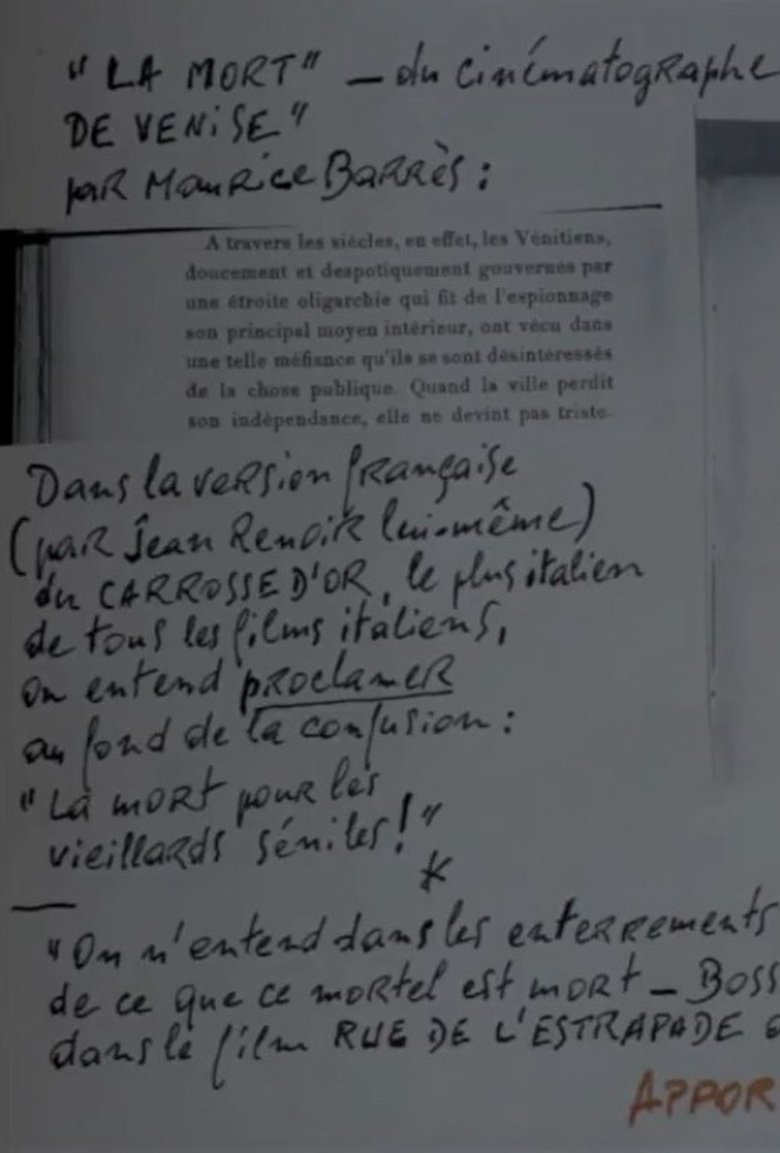 "LA MORT" — du cinématographe
DE VENISE"
par Maurice Barrès :
A travers les siècles, en effet, les Vénitiens,
doucement et despotiquement gouvernés par
une étroite oligarchie qui fit de l'espionnage
son principal moyen intérieur, ont vécu dans
une telle méfiance qu'ils se sont désintéressés
de la chose publique. Quand la ville perdit
son indépendance, elle ne devint pas triste.
Dans la version française
(par Jean Renoir lui-même)
du CARROSSE D'OR, le plus italien
de tous les films italiens,
on entend proclamer
au fond de la confusion :
"La mort pour les
vieillards séniles!"
*
"On n'entend dans les enterrements
de ce que ce mortel est mort — BOSS
dans le film RUE DE L'ESTRAPADE E
APPOR